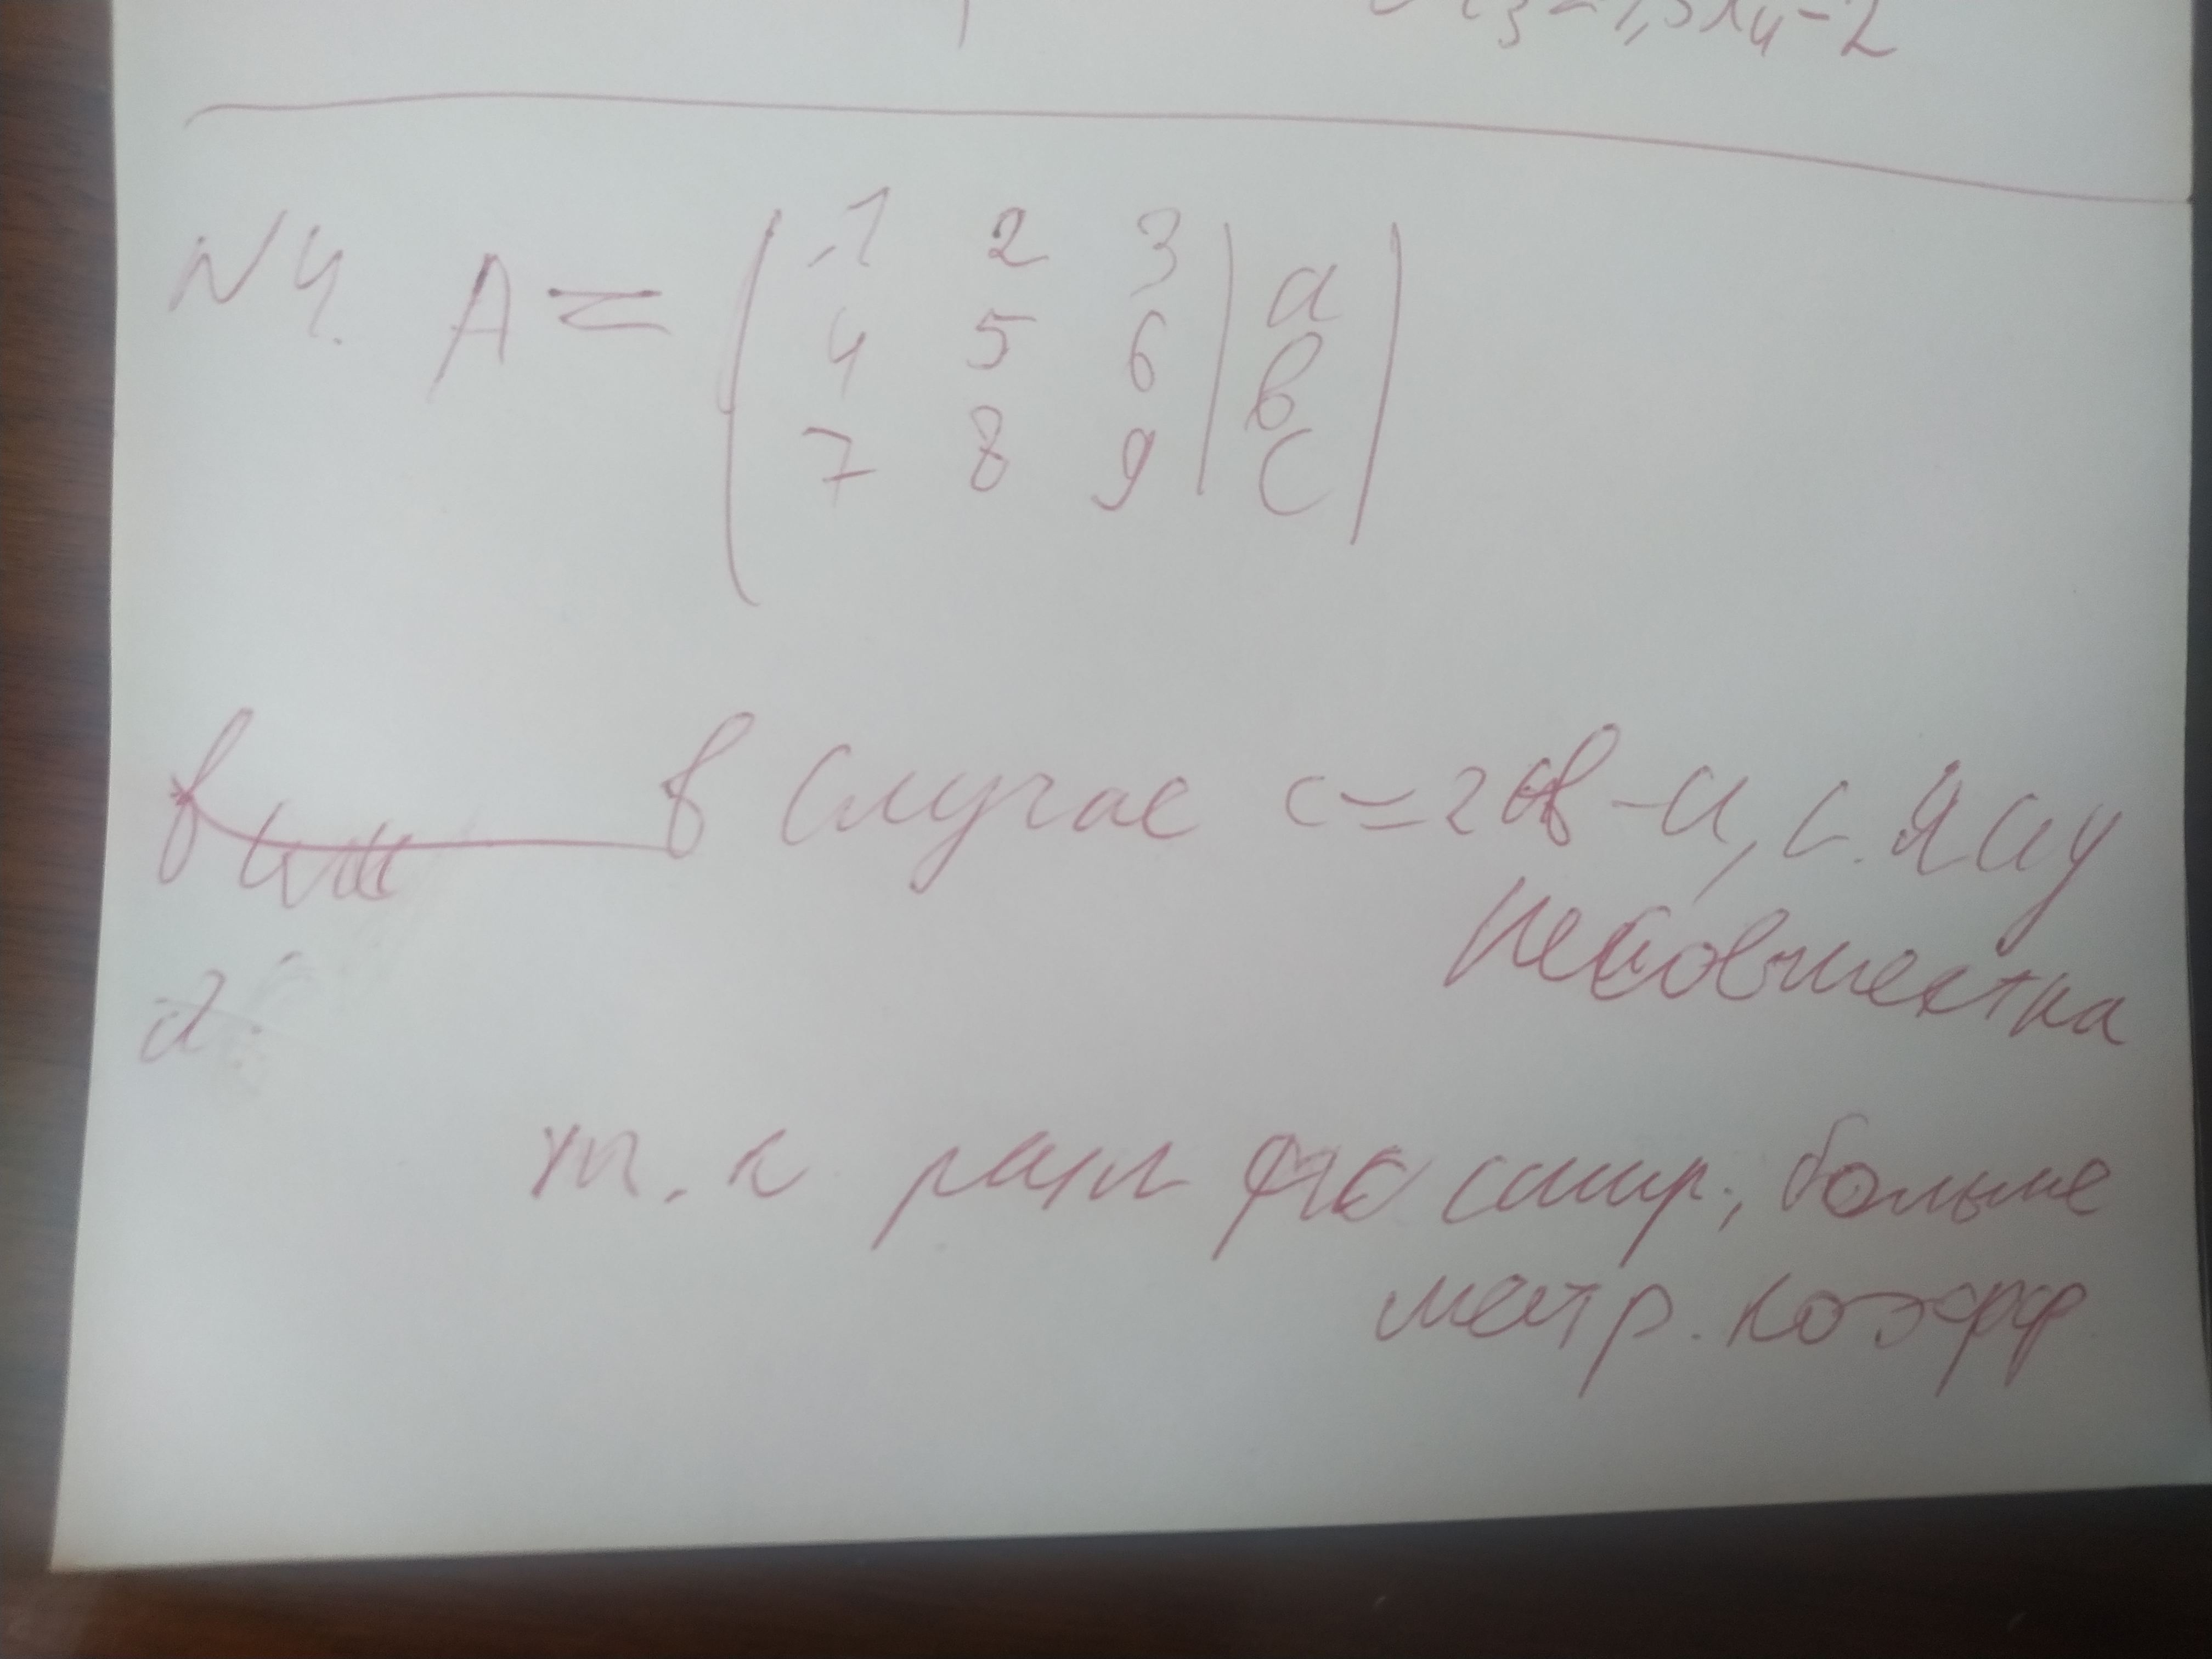 x₃ = 1,5x₄ - 2
N4. A = ( 1 2 3 | a )
4 5 6 | b
7 8 9 | c
в случае c = 2b - a, с.
несовместна
т. к ранг расшир; больше
матр. коэфф